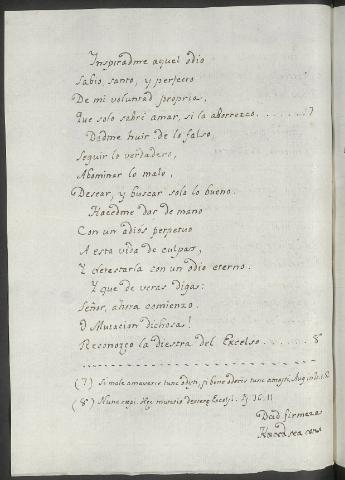 Inspiradme aquel odio
Sabio, santo, y perfecto
De mi voluntad propria,
Que solo sabré amar, si la aborrezco. . . . . . . . 7
Dadme huir de lo falso,
Seguir lo verdadero,
Abominar lo malo,
Desear, y buscar solo lo bueno.
Hacedme dar de mano
Con un adios perpetuo
A esta vida de culpas,
Y detestarla con un odio eterno.
Y que de veras diga:
Señor, ahora comienzo.
O Mutacion dichosa!
Reconozco la diestra del Excelso. . . . . . 8
(7) Si male amaveris tunc odisti, si bene oderis tunc amasti. Aug in
(8) Nunc coepi. Hec mutatio dexterę Excelsi. Ps 76. 11
Dad firmeza